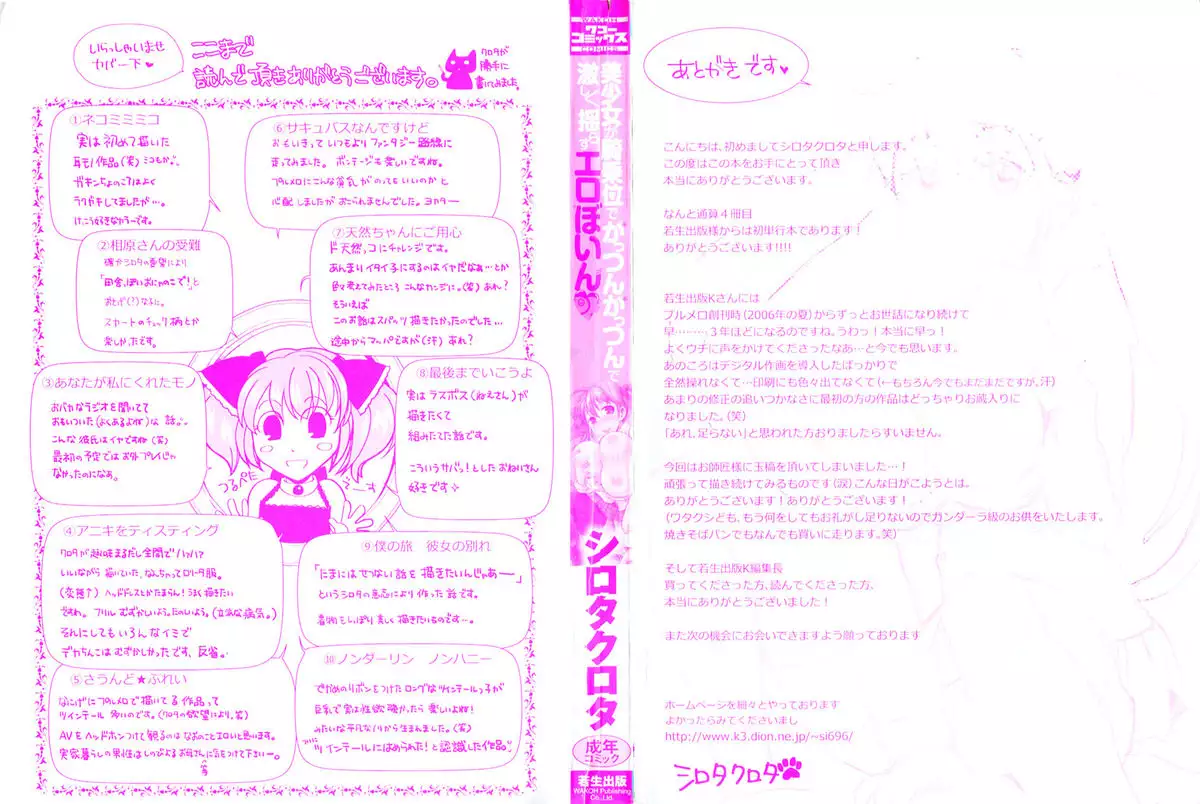 いらっしゃいませ
カバー下♥
ここまで
読んで頂きありがとうございます。
クロタが
勝手に
書いてみました。
①ネコミミミコ
実は初めて描いた
耳モノ作品(笑)ミコもか。
ガキンちょのころはよく
ラクガキしてましたが…。
けっこう好きなカラーです。
②相原さんの受難
確かシロタの要望により
「田舎っぽいおにゃのこで!」と
なるに。
スカートのチェック柄とか
楽しかったです。
③あなたが私にくれたモノ
おバカなラジオを聞いてて
おもいついた(よくあるよね)は話。
こんな彼氏はイヤですね(笑)
最初の予定ではお外プレイじゃ
なかったのになぁ。
④アニキをテイスティング
クロタが趣味まるだし全開でハァハァ
いいながら描いていた、なんちゃってロリータ服。
(変態↑)ヘッドドレスとかたまらん!うまく描きたい
ですねぇ。フリルむずかしいよう。たのしいよう。(立派な病気。)
それにしてもいろんなイミで
デカちんこはむずかしかったです、反省。
⑤さうんど★ぷれい
なにげにプルメロで描いてる作品って
ツインテール多いのです。(クロタの欲望により。笑)
AVをヘッドホンつけて観るのはなおのことエロいと思います。
実家暮らしの男性はしのびよるお母さんに気をつけて下さいー。
(笑)
⑥サキュバスなんですけど
おもいきっていつもよりファンタジー路線に
走ってみました。ボンテージも楽しいですね。
プルメロにこんな貧乳がのってもいいのかと
心配しましたがおこられませんでした。ヨカター
⑦天然ちゃんにご用心
ド天然っコにチャレンジです。
あんまりイタイ子にするのはイヤだなぁ…とか
色々考えてみたところこんなカンジに。(笑)あれ?
もういえば
このお話はスパッツ描きたかったのでした…
途中からマッパですが(汗)あれ?
⑧最後までいこうよ
実はラスボス(ねえさん)が
描きたくて
組みたてた話です。
こういうサバッ!としたおねいさん
好きです☆
つるぺた
⑨僕の旅 彼女の別れ
「たまにはせつない話を描きたいんじゃあー」
というシロタの意志により作った話です。
着物もしっぽり美しく描きたいものです…。
⑩ノンダーリン ノンハニー
でかめのリボンをつけたロングなツインテールっ子が
巨乳で実は性欲強かったら楽しいよね!
みたいな平凡なノリから生まれました。(笑)
ツインテールにはめられた!と認識した作品。
WAKOH
ワコー
コミックス
COMICS
美少女が騎乗位でがっつんがっつんと
激しく揺らす
エロぼいん
シロタクロタ
成年
コミック
若生出版
WAKOH Publishing
Co.,Ltd.
あとがきです♥
こんにちは、初めましてシロタクロタと申します。
この度はこの本をお手にとって頂き
本当にありがとうございます。
なんと通算4冊目
若生出版様からは初単行本であります!
ありがとうございます!!!!
若生出版Kさんには
プルメロ創刊時(2006年の夏)からずっとお世話になり続けて
早………3年ほどになるのですね。うわっ!本当に早っ!
よくウチに声をかけてくださったなあ…と今でも思います。
あのころはデジタル作画を導入したばっかりで
全然操れなくて…印刷にも色々出てなくて(←もちろん今でもまだまだですが。汗)
あまりの修正の追いつかなさに最初の方の作品はどっちゃりお蔵入りに
なりました。(笑)
「あれ、足らない」と思われた方おりましたらすいません。
今回はお師匠様に玉稿を頂いてしまいました…!
頑張って描き続けてみるものです(涙)こんな日がこようとは。
ありがとうございます!ありがとうございます!
(ワタクシども、もう何をしてもお礼がし足りないのでガンダーラ級のお供をいたします。
焼きそばパンでもなんでも買いに走ります。笑)
そして若生出版K編集長
買ってくださった方、読んでくださった方、
本当にありがとうございました!
また次の機会にお会いできますよう願っております
ホームページを細々とやっております
よかったらみてくださいまし
http://www.k3.dion.ne.jp/~si696/
シロタクロタ